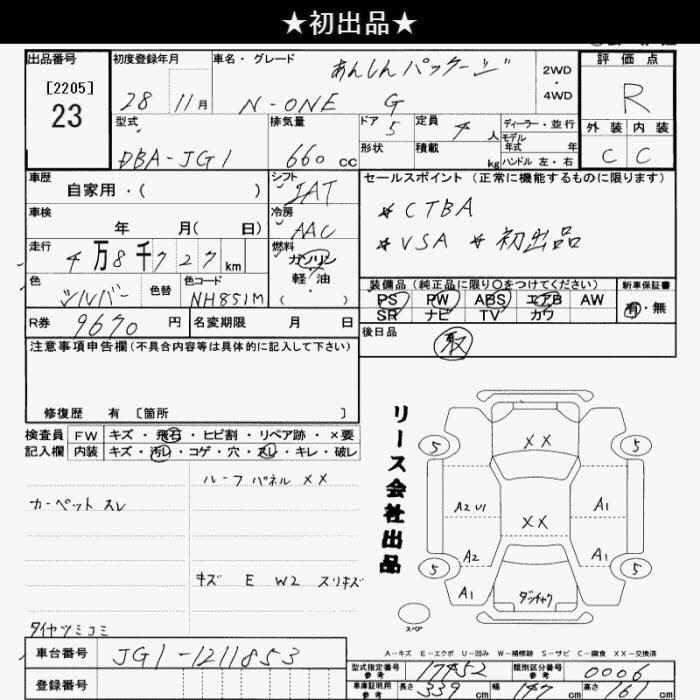 ★初出品★
出品番号
[2205]
23
初度登録年月
28 11月
車名・グレード
あんしんパッケージ
N-ONE G
2WD
・
4WD
評価点
R
外装 内装
C C
型式
DBA-JG1
排気量
660 cc
ドア 5
形状
定員 4 人
積載 kg
ディーラー・並行
モデル年式 年
ハンドル 左・右
車歴
自家用・( )
シフト
IAT
車検
年 月( 日)
冷房
AAC
走行
4万8千727km
燃料
ガソリン
軽油
( ・ )
色
シルバー
色替
色コード
NH851M
セールスポイント (正常に機能するものに限ります)
* CTBA
* VSA * 初出品
装備品(純正品に限り〇をつけてください)
PS PW ABS エアB AW
SR ナビ TV カワ
新車保証書
有・無
R券 9670 円
名変期限 月 日
後日品
取
注意事項申告欄(不具合内容等は具体的に記入して下さい)
修復歴 有 [箇所 ]
検査員 FW キズ・飛石・ヒビ割・リペア跡・×要
記入欄 内装 キズ・汚レ・コゲ・穴・スレ・キレ・破レ
ルーフパネル XX
カーペット スレ
キズ E W2 スリキズ
タイヤツミコミ
リース会社出品
5 XX 5
A2 U1 A1
XX
A2 A1
5 5
A1 ダッチャク
スペア
A-キズ E-エクボ U-凹み W-補修跡 S-サビ C-腐食 XX-交換済
車台番号 JG1-1211853
登録番号
型式指定番号
参考 17452
類別区分番号
参考 0006
車庫証明用
参考 長さ 339 cm 幅 147 cm 高さ 161 cm